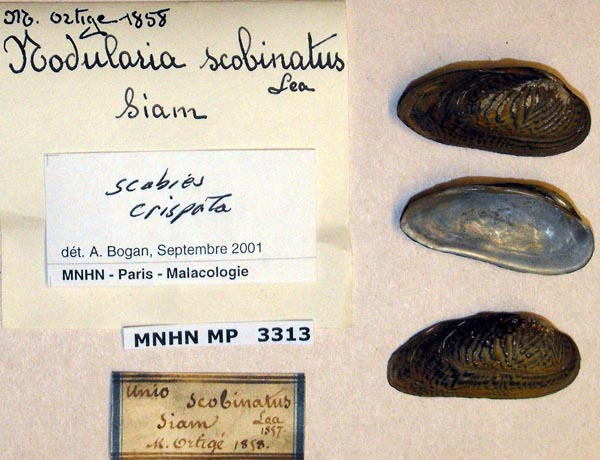 M. Ortigé 1858
Nodularia scobinatus
Lea
Siam
scabies
crispata
dét. A. Bogan, Septembre 2001
MNHN - Paris - Malacologie
MNHN MP 3313
Unio scobinatus
Siam Lea
1857.
M. Ortigé 1858.